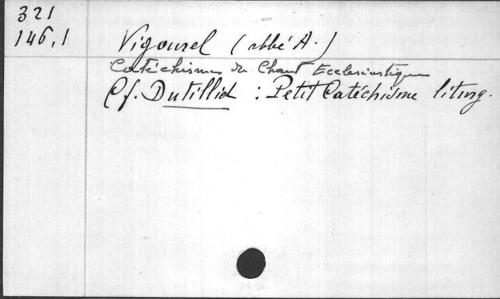 321
146,1
Vigourel (abbé A.)
Catéchisme de Chant Ecclésiastique
Cf. Dutilliet : Petit Catéchisme liturg.